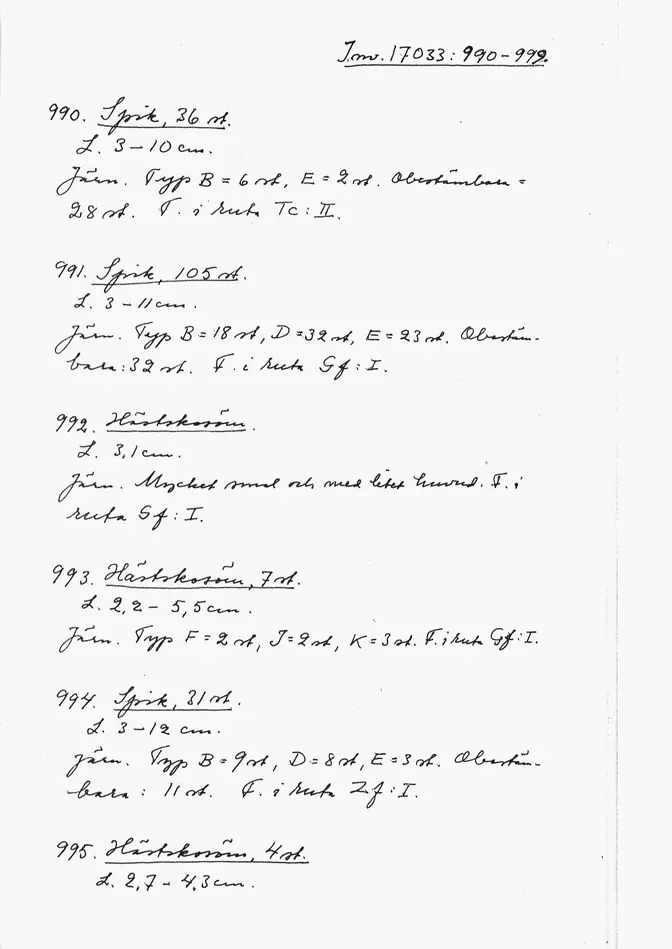 Inv. 17033: 990-999.
990. Spik, 36 st.
L. 3-10 cm.
Järn. Typ B = 6 st, E = 2 st. Obestämbara =
28 st. F. i ruta Tc: II.
991. Spik, 105 st.
L. 3-11 cm.
Järn. Typ B = 18 st, D = 32 st, E = 23 st. Obestäm-
bara: 32 st. F. i ruta Gf: I.
992. Hästskosöm.
L. 3,1 cm.
Järn. Mycket smal och med litet huvud. F. i
ruta Gf: I.
993. Hästskosöm, 7 st.
L. 2,2 - 5,5 cm.
Järn. Typ F = 2 st, J = 2 st, K = 3 st. F. i ruta Gf: I.
994. Spik, 31 st.
L. 3-12 cm.
Järn. Typ B = 9 st, D = 8 st, E = 3 st. Obestäm-
bara: 11 st. F. i ruta Zf: I.
995. Hästskosöm, 4 st.
L. 2,7 - 4,3 cm.